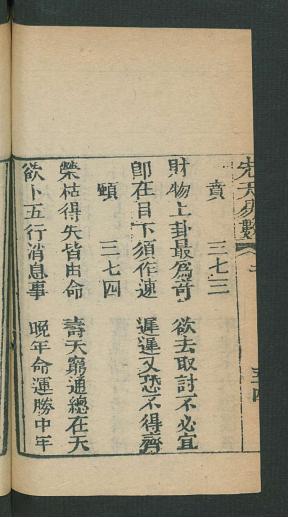 先天易數 二 五十四
賁 三七三
財物上卦最爲奇 欲去取討不必宜
卽在目下須作速 遲遲又恐不得齊
頤 三七四
榮枯得失皆由命 壽夭窮通總在天
欲卜五行消息事 晚年命運勝中年